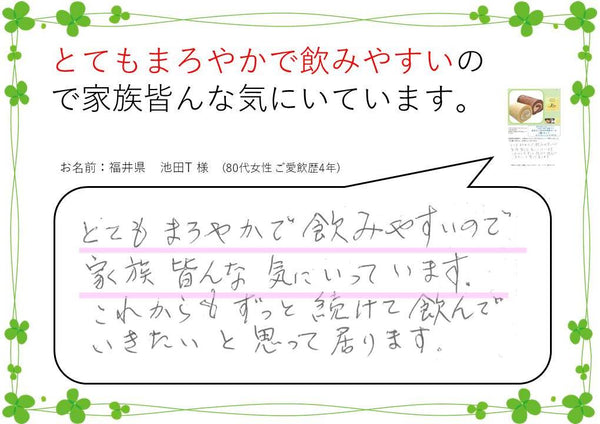 とてもまろやかで飲みやすいの
で家族皆んな気にいています。
お名前：福井県　池田T 様　（80代女性 ご愛飲歴4年）
とてもまろやかで飲みやすいので
家族皆んな気にいっています。
これからもずっと続けて飲んで
いきたいと思って居ります。